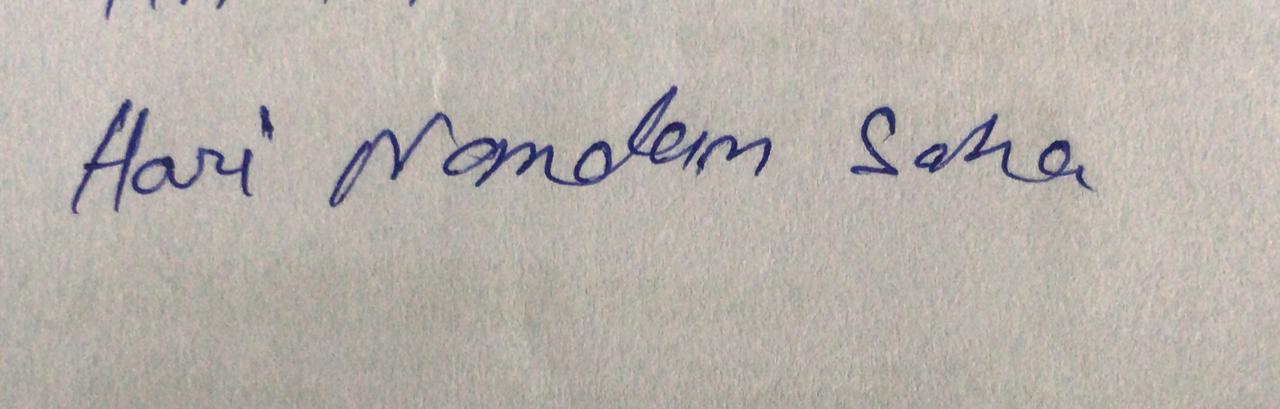 Hari Nandan Saha